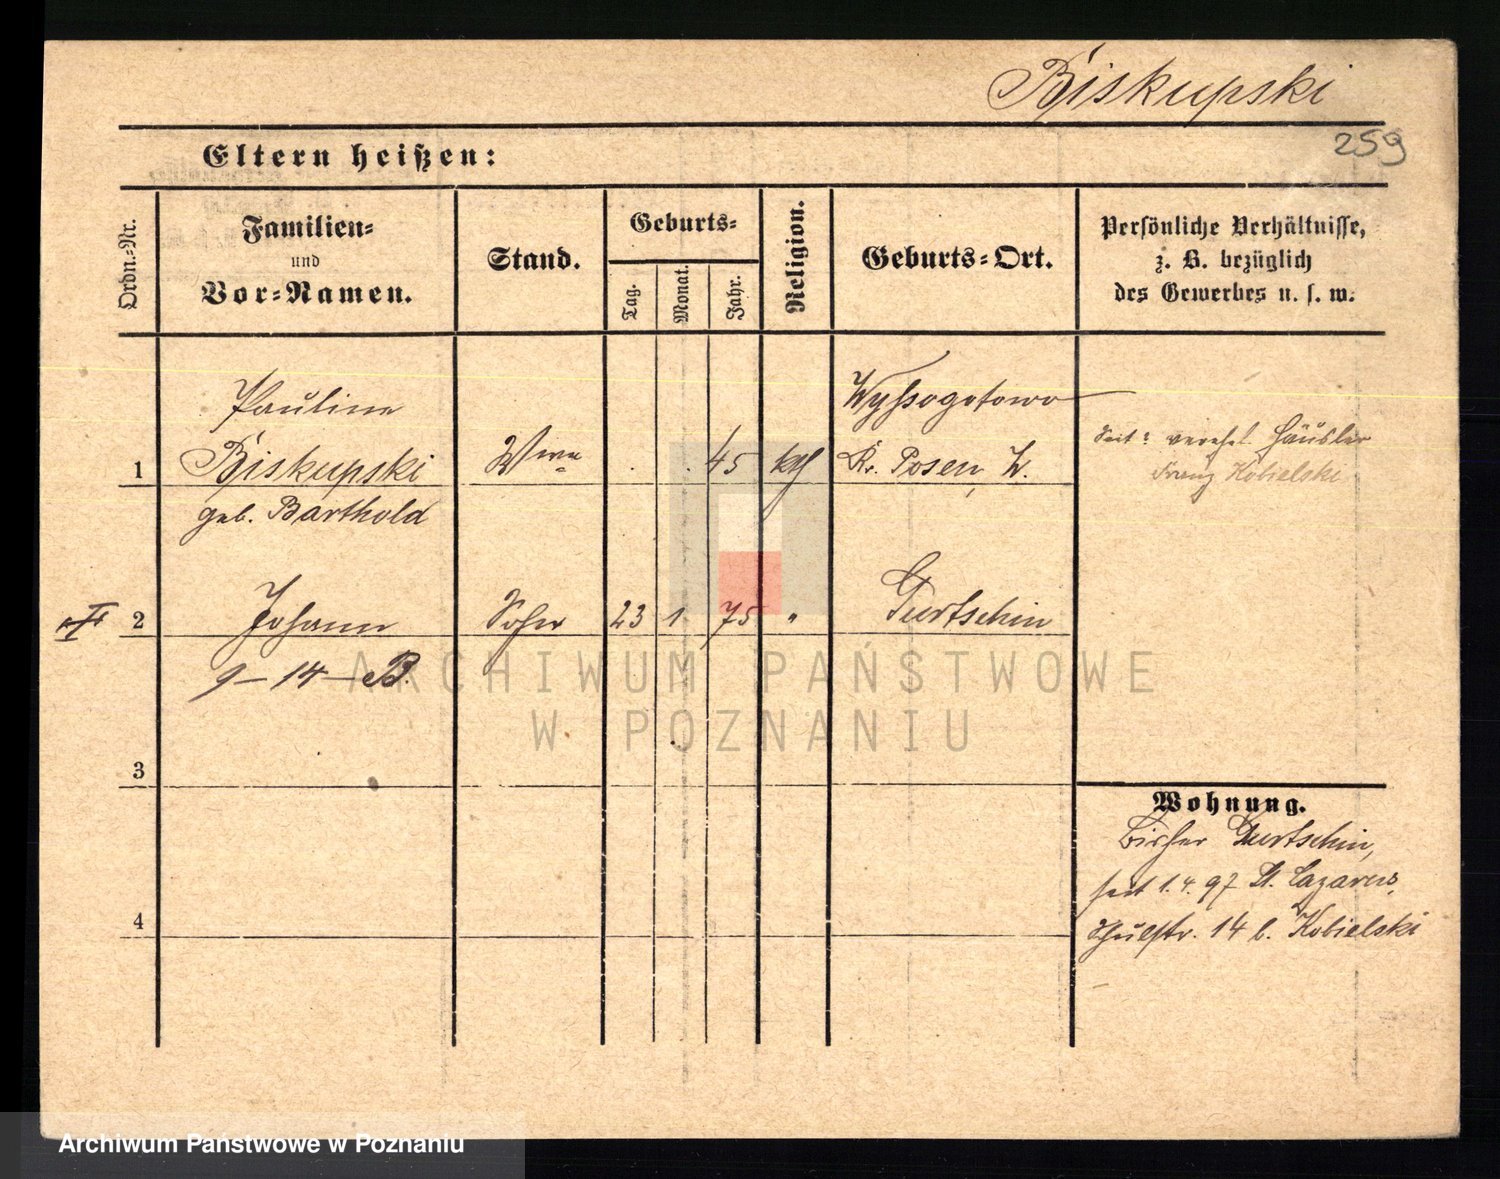 Biskupski
259
Eltern heißen:
Ordn.-Nr.
Familien-
und
Vor-Namen.
Stand.
Geburts-
Tag.
Monat.
Jahr.
Religion.
Geburts-Ort.
Persönliche Verhältnisse,
z. B. bezüglich
des Gewerbes u. s. w.
1
Pauline
Biskupski
geb. Barthold
Wwe
45
kth
Wyssogotowo
Kr. Posen, W.
verehel. Häusler
Franz Kobielski
II
2
Johann
9-14-B.
Sohn
23
1
75
"
Gurtschin
3
4
Wohnung.
Bisher Gurtschin,
seit 1.4.97 St. Lazarus,
Schulstr. 14 b. Kobielski
ARCHIWUM PAŃSTWOWE
W POZNANIU
Archiwum Państwowe w Poznaniu